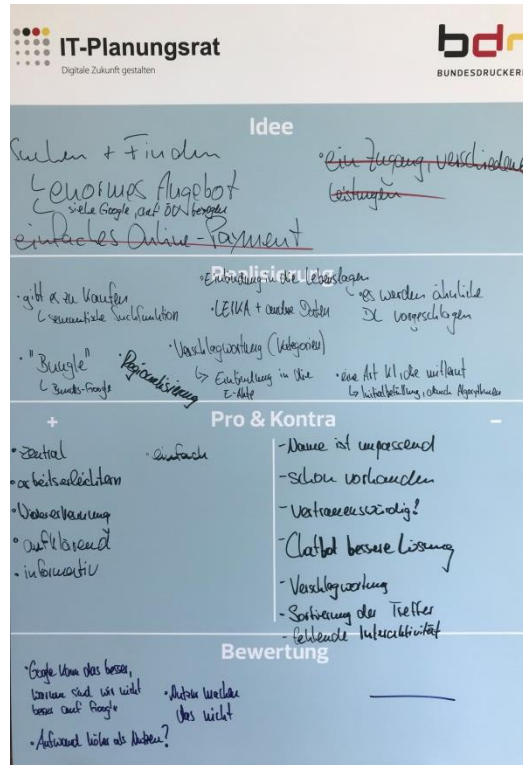 IT-Planungsrat
Digitale Zukunft gestalten
bdr
BUNDESDRUCKEREI
Idee
Suchen + Finden
enormes Angebot
siehe Google, auf ÖV bezogen
einfaches Online-Payment
• ein Zugang, verschiedene
Leistungen
Realisierung
• gibt es zu kaufen
semantische Suchfunktion
• "Bungle"
Bundes-Google
• Regionalisierung
• Einbindung in die Lebenslagen
• LEIKA + andere Daten
• Verschlagwortung (Kategorien)
Einbindung in die
E-Akte
• es werden ähnliche
DL vorgeschlagen
• eine Art KI, die mitlernt
Initialbefüllung, durch Algorithmen
+ Pro & Kontra -
• zentral
• arbeitserleichtern
• Wiedererkennung
• aufklärend
• informativ
• einfach
- Name ist unpassend
- schon vorhanden
- Vertrauenswürdig?
- Chatbot bessere Lösung
- Verschlagwortung
- Sortierung der Treffer
- fehlende Interaktivität
Bewertung
• Google kann das besser,
warum sind wir nicht
besser auf Google
• Aufwand höher als Nutzen?
• Nutzer merken
das nicht